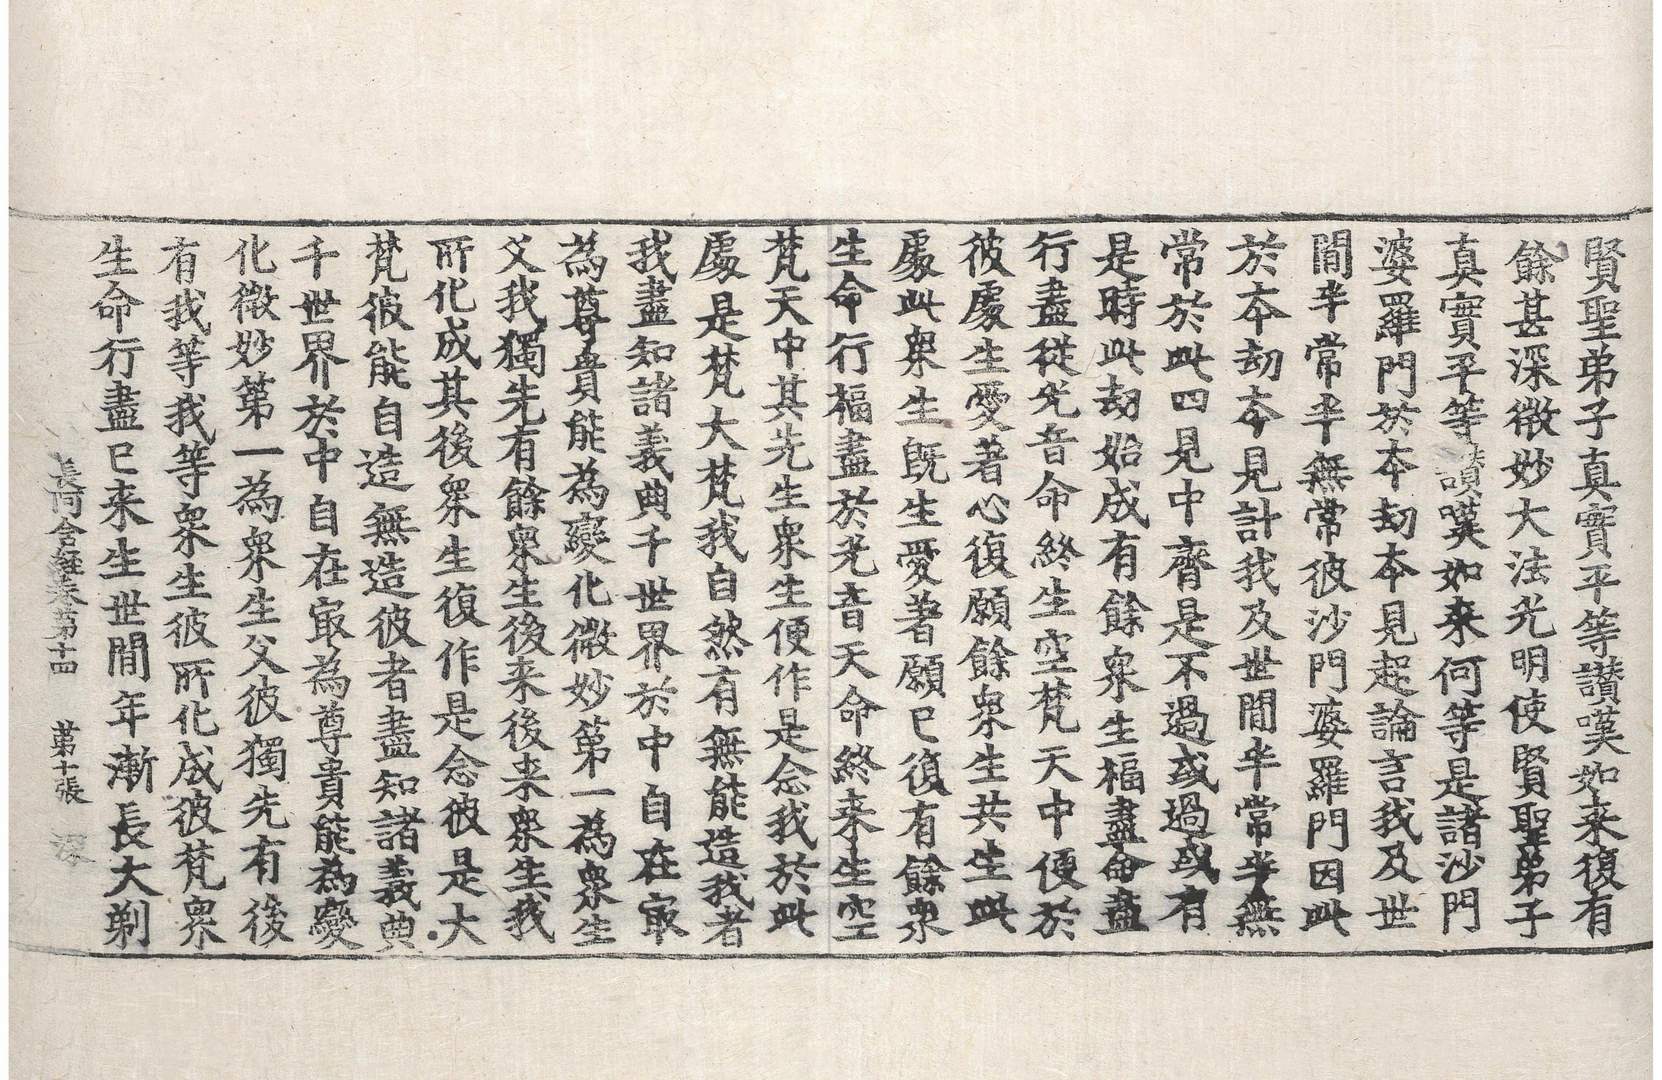 賢聖弟子真實平等讃嘆如来復有
餘甚深微妙大法光明使賢聖弟子
真實平等讃嘆如来何等是諸沙門
婆羅門於本劫本見起論言我及世
閒半常半無常彼沙門婆羅門因此
於本劫本見計我及世閒半常半無
常於此四見中齊是不過或過或有
是時此劫始成有餘衆生福盡命盡
行盡從光音命終生空梵天中便於
彼處生愛著心復願餘衆生共生此
處此衆生既生愛著願已復有餘衆
生命行福盡於光音天命終来生空
梵天中其先生衆生便作是念我於此
處是梵大梵我自然有無能造我者
我盡知諸義典千世界於中自在㝡
為尊貴能為變化微妙第一為衆生
父我獨先有餘衆生後来後来衆生我
所化成其後衆生復作是念彼是大
梵彼能自造無造彼者盡知諸義典
千世界於中自在㝡為尊貴能為變
化微妙第一為衆生父彼獨先有後
有我等我等衆生彼所化成彼梵衆
生命行盡已来生世閒年漸長大剃
長阿含經卷第十四 第十張 深